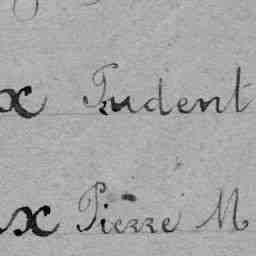 x Prudent
x Pierre M